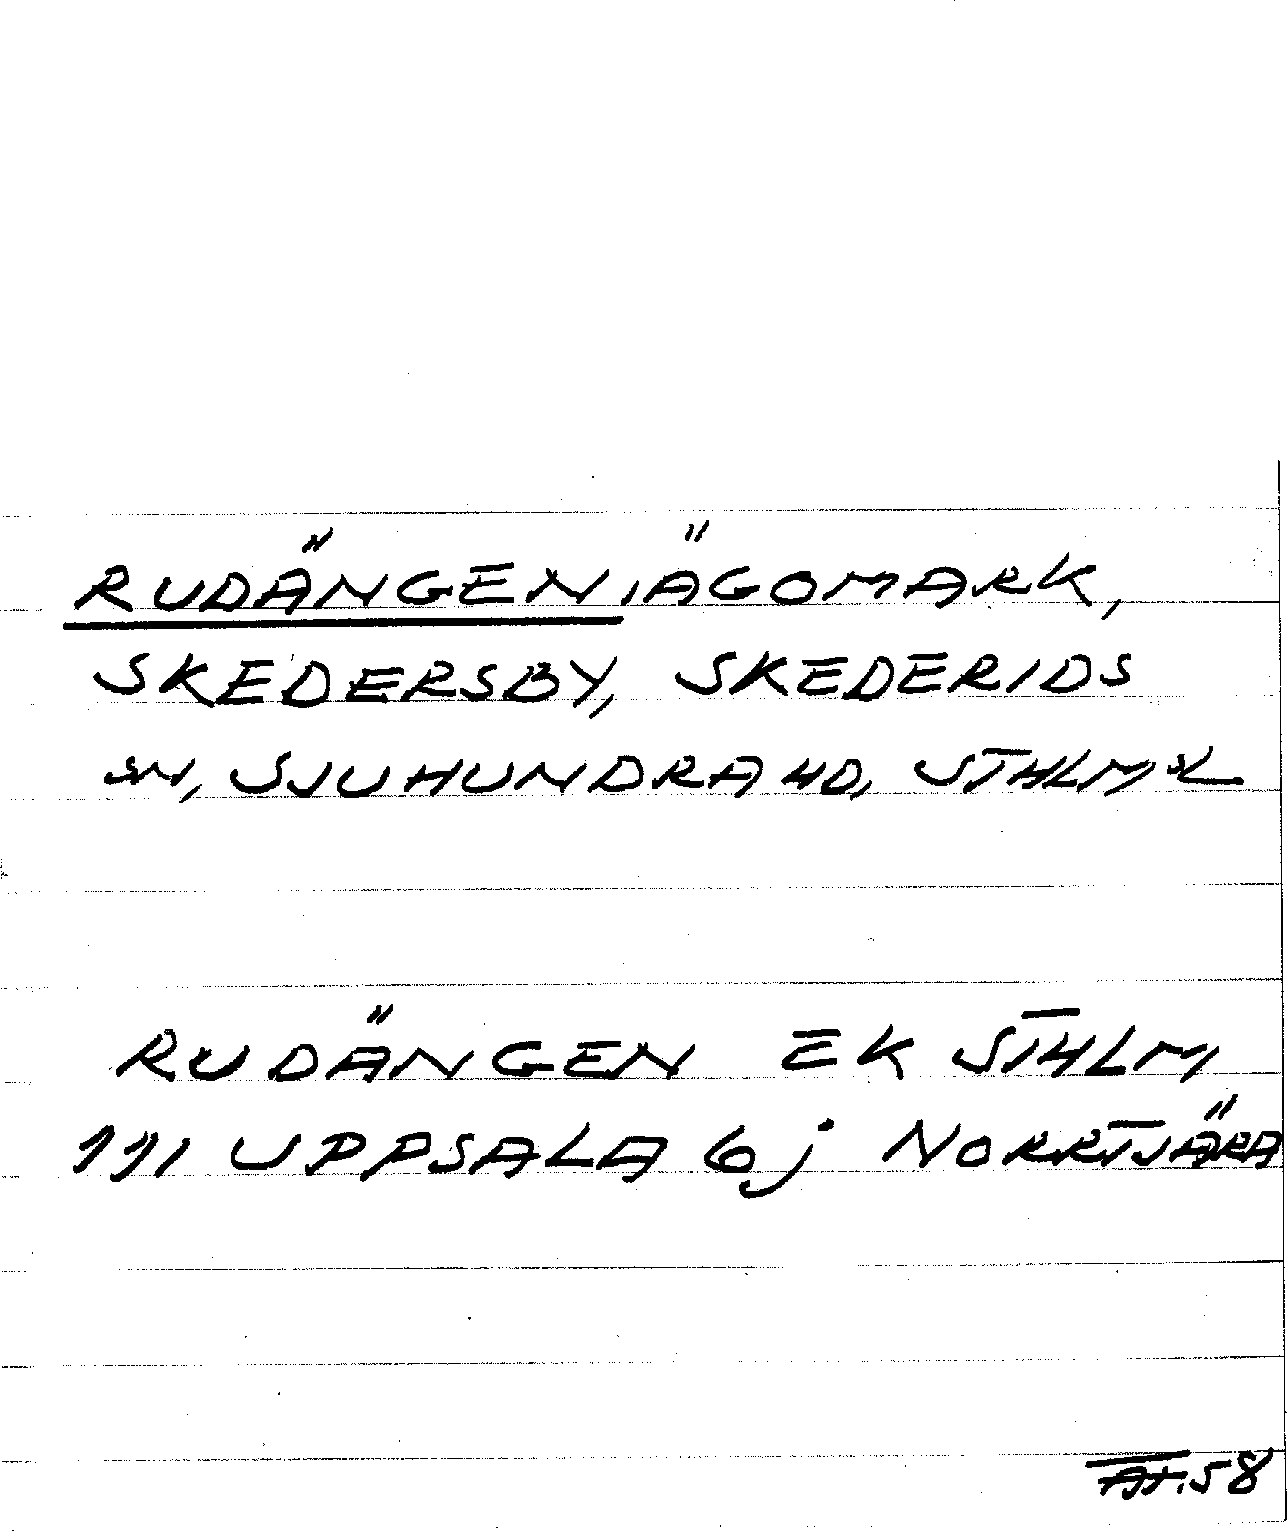 RUDÄNGEN, ÄGOMARK,
SKEDERSBY, SKEDERIDS
SN, SJUHUNDRA HD, STHLMSL
RUDÄNGEN EK STHLM
111 UPPSALA 6j NORRTJÄRA
58